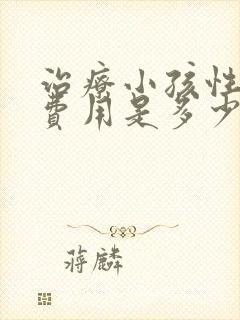 治療小孩性
費用是多少
蔣麟